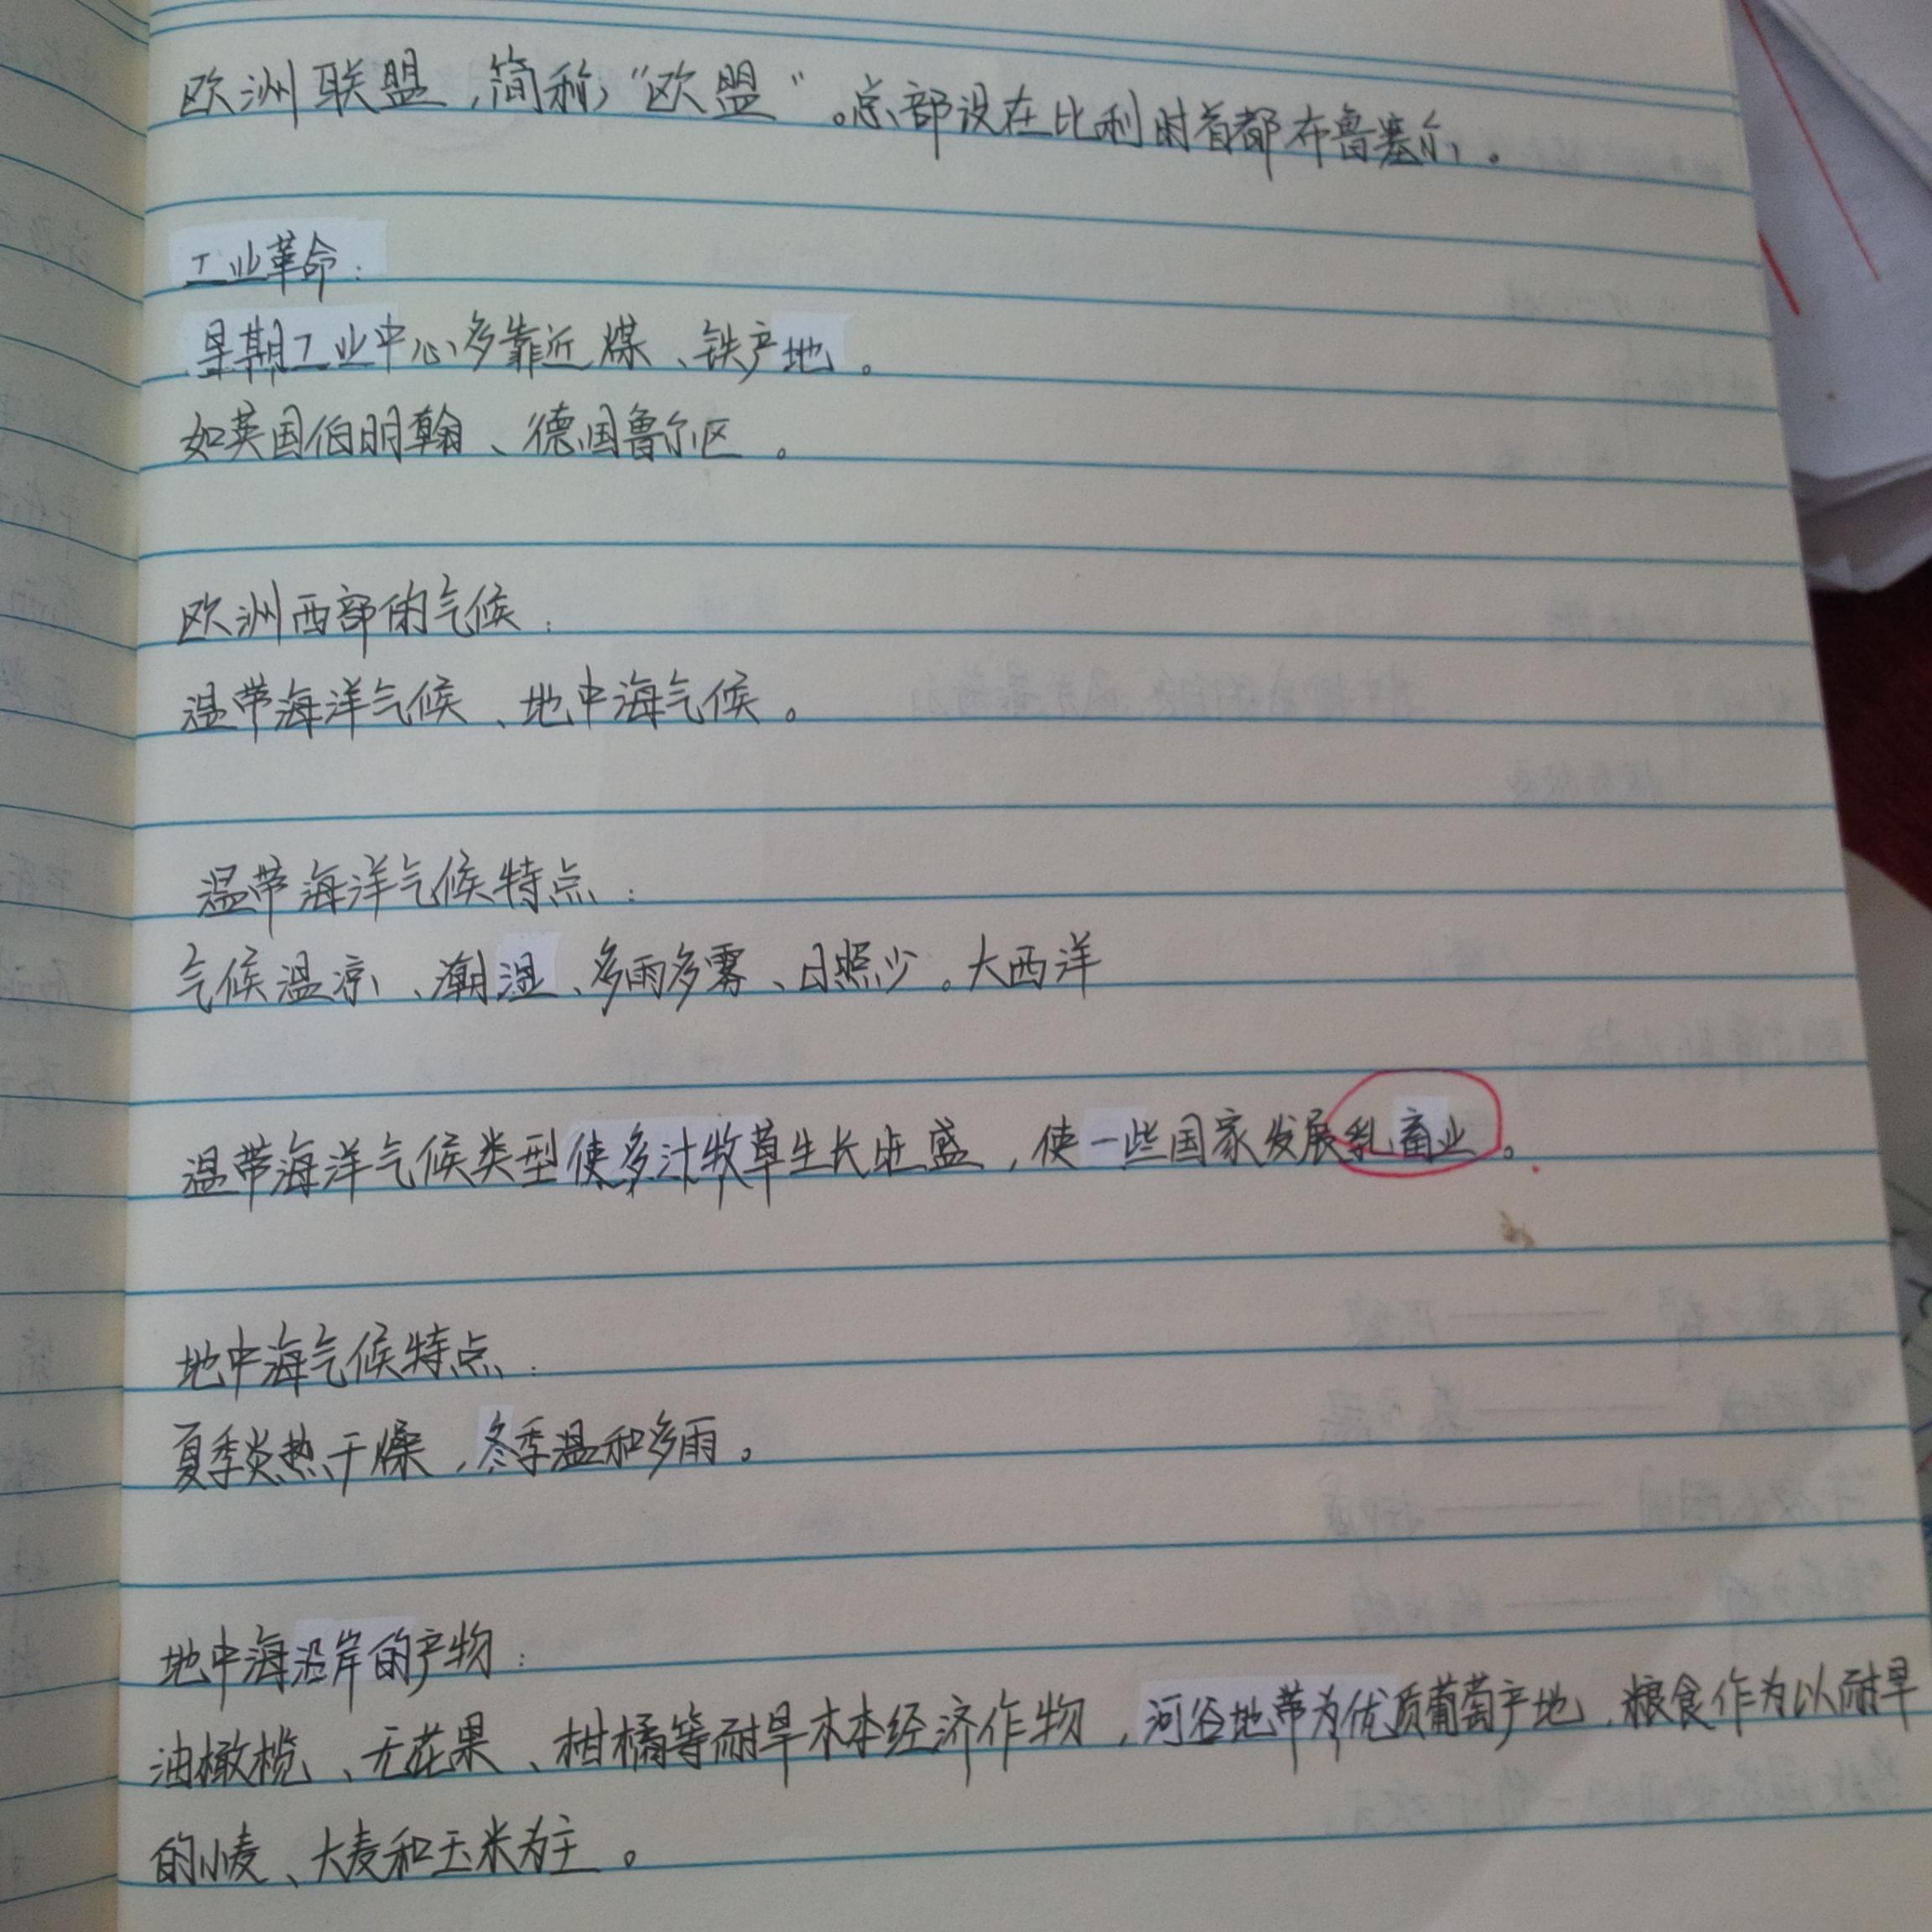 欧洲联盟，简称“欧盟”。总部设在比利时首都布鲁塞尔。
工业革命：
早期工业中心多靠近煤、铁产地。
如英国伯明翰、德国鲁尔区。
欧洲西部的气候：
温带海洋气候、地中海气候。
温带海洋气候特点：
气候温凉、潮湿、多雨多雾、日照少。大西洋
温带海洋气候类型使多汁牧草生长旺盛，使一些国家发展乳畜业。
地中海气候特点：
夏季炎热干燥，冬季温和多雨。
地中海沿岸的产物：
油橄榄、无花果、柑橘等耐旱木本经济作物，河谷地带为优质葡萄产地，粮食作为以耐旱
的小麦、大麦和玉米为主。